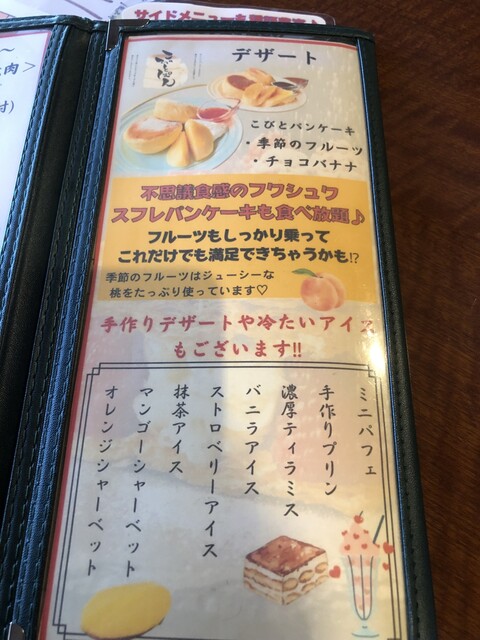 サイドメニューも
デザート
こびとパンケーキ
・季節のフルーツ
・チョコバナナ
不思議食感のフワシュワ
スフレパンケーキも食べ放題♪
フルーツもしっかり乗って
これだけでも満足できちゃうかも!?
季節のフルーツはジューシーな
桃をたっぷり使っています♡
手作りデザートや冷たいアイス
もございます!!
ミニパフェ
手作りプリン
濃厚ティラミス
バニラアイス
ストロベリーアイス
抹茶アイス
マンゴーシャーベット
オレンジシャーベット
肉>
付)